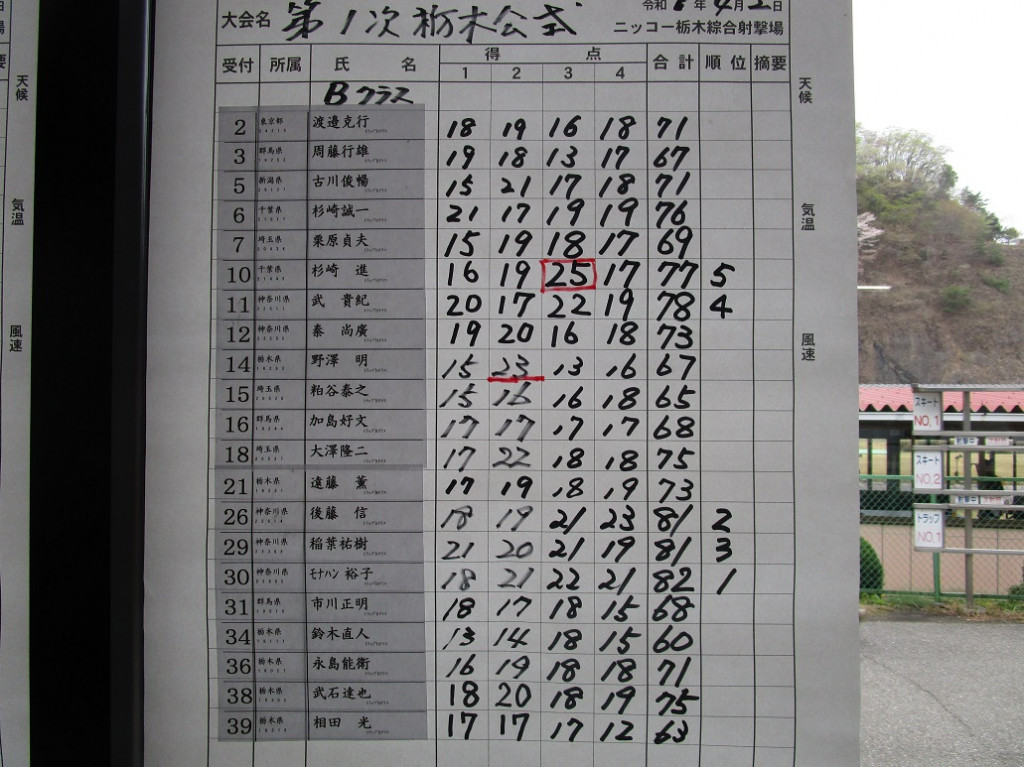 大会名 第1次栃木公式 令和6年4月2日
ニッコー栃木綜合射撃場
受付 所属 氏名 得点 合計 順位 摘要
1 2 3 4
Bクラス
2 東京都 渡邉克行 18 19 16 18 71
3 群馬県 周藤行雄 19 18 13 17 67
5 新潟県 古川俊暢 15 21 17 18 71
6 千葉県 杉崎誠一 21 17 19 19 76
7 埼玉県 栗原貞夫 15 19 18 17 69
10 千葉県 杉崎 進 16 19 25 17 77 5
11 神奈川県 武 貴紀 20 17 22 19 78 4
12 神奈川県 秦 尚廣 19 20 16 18 73
14 栃木県 野澤 明 15 23 13 16 67
15 埼玉県 粕谷泰之 15 16 16 18 65
16 群馬県 加島好文 17 17 17 17 68
18 埼玉県 大澤隆二 17 22 18 18 75
21 栃木県 遠藤 薫 17 19 18 19 73
26 神奈川県 後藤 信 18 19 21 23 81 2
29 神奈川県 稲葉祐樹 21 20 21 19 81 3
30 神奈川県 モナハン 裕子 18 21 22 21 82 1
31 群馬県 市川正明 18 17 18 15 68
34 栃木県 鈴木直人 13 14 18 15 60
36 栃木県 永島能衛 16 19 18 18 71
38 栃木県 武石達也 18 20 18 19 75
39 栃木県 相田 光 17 17 17 12 63
天候
気温
風速
天候
気温
風速
スキート
NO.1
スキート
NO.2
トラップ
NO.1